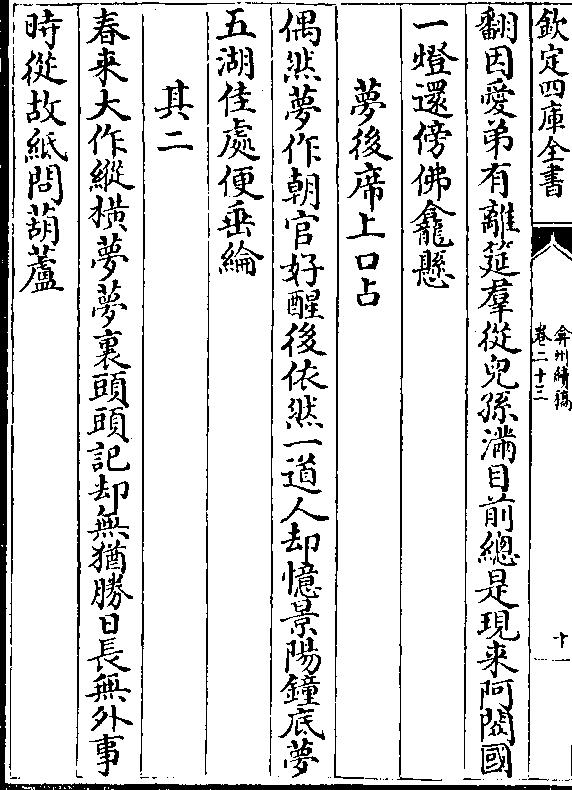 欽定四庫全書
弇州續稿
卷二十三
十
翻因愛弟有離筵羣從兒孫滿目前總是現来阿閦國
一燈還傍佛龕懸
夢後席上口占
偶然夢作朝官好醒後依然一道人却憶景陽鐘底夢
五湖佳處便垂綸
其二
春来大作縱横夢夢裏頭頭記却無猶勝日長無外事
時從故紙問葫蘆